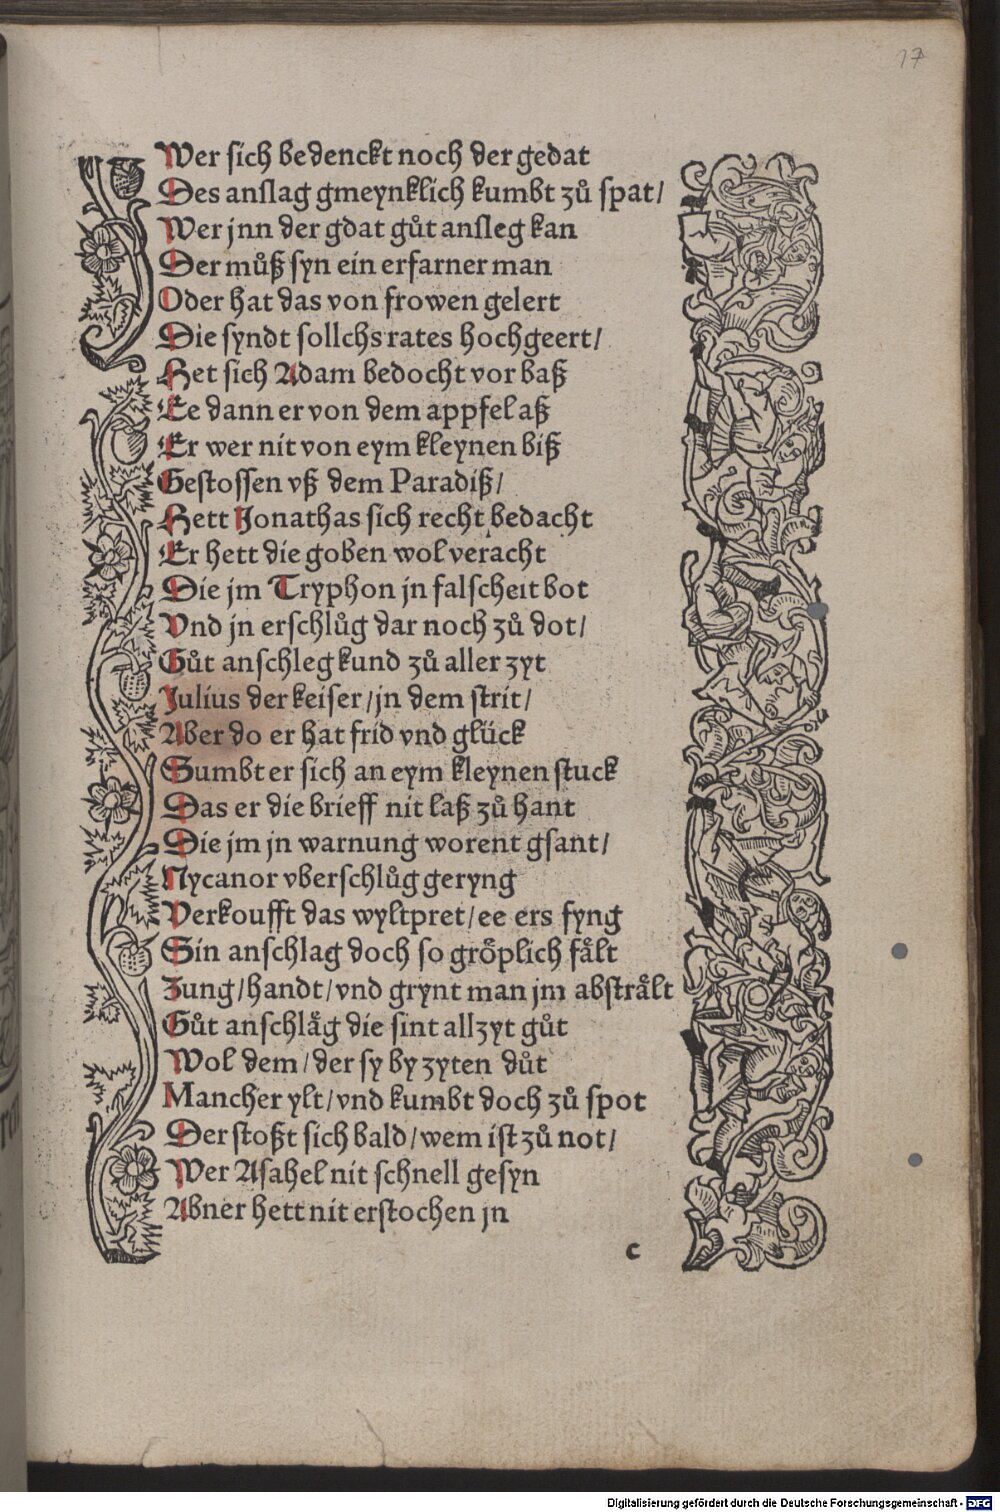 17
Wer sich bedenckt noch der gedat
Des anslag gmeynklich kumbt zů spat/
Wer jnn der gdat gůt ansleg kan
Der můß syn ein erfarner man
Oder hat das von frowen gelert
Die syndt sollchs rates hochgeert/
Het sich Adam bedocht vor baß
Ee dann er von dem appfel aß
Er wer nit von eym kleynen biß
Gestossen vß dem Paradiß/
Hett Jonathas sich recht bedacht
Er hett die goben wol veracht
Die jm Tryphon jn falscheit bot
Vnd jn erschlůg dar noch zů dot/
Gůt anschleg kund zů aller zyt
Julius der keiser/jn dem strit/
Aber do er hat frid vnd glück
Sumbt er sich an eym kleynen stuck
Das er die brieff nit laß zů hant
Die jm jn warnung worent gsant/
Nycanor vberschlůg geryng
Verkoufft das wyltpret/ee ers fyng
Sin anschlag doch so gröplich fålt
Zung/handt/vnd grynt man jm abstrålt
Gůt anschlåg die sint allzyt gůt
Wol dem/der sy by zyten důt
Mancher ylt/vnd kumbt doch zů spot
Der stoßt sich bald/wem ist zů not/
Wer Asahel nit schnell gesyn
Abner hett nit erstochen jn
c
Digitalisierung gefördert durch die Deutsche Forschungsgemeinschaft - DFG